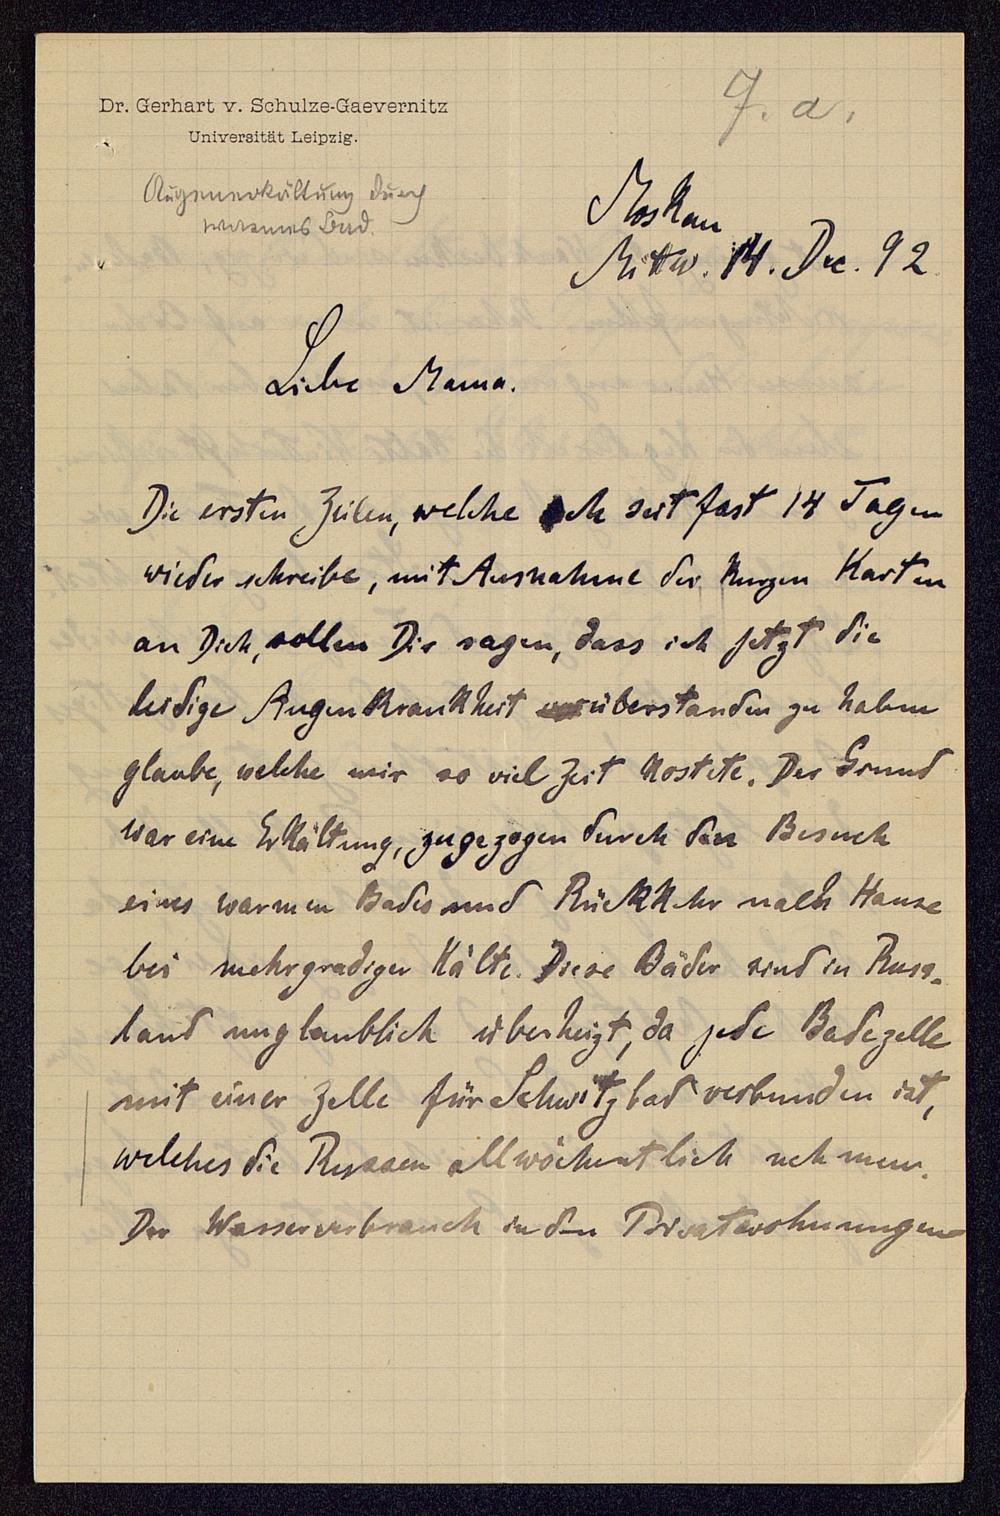 Dr. Gerhart v. Schulze-Gaevernitz
Universität Leipzig.
7. a.
Augenerkältung durch
warmes Bad.
Moskau
Mittw. 14. Dec. 92
Liebe Mama.
Die ersten Zeilen, welche ich seit fast 14 Tagen
wieder schreibe, mit Ausnahme der kurzen Karten
an Dich, sollen Dir sagen, dass ich jetzt die
leidige Augenkrankheit überstanden zu haben
glaube, welche mir so viel Zeit kostete. Der Grund
war eine Erkältung, zugezogen durch den Besuch
eines warmen Bades und Rückkehr nach Hause
bei mehrgradiger Kälte. Diese Bäder sind in Russ-
land unglaublich überheizt, da jede Badezelle
mit einer Zelle für Schwitzbad verbunden ist,
welches die Russen allwöchentlich nehmen.
Der Wasserverbrauch in den Privatwohnungen